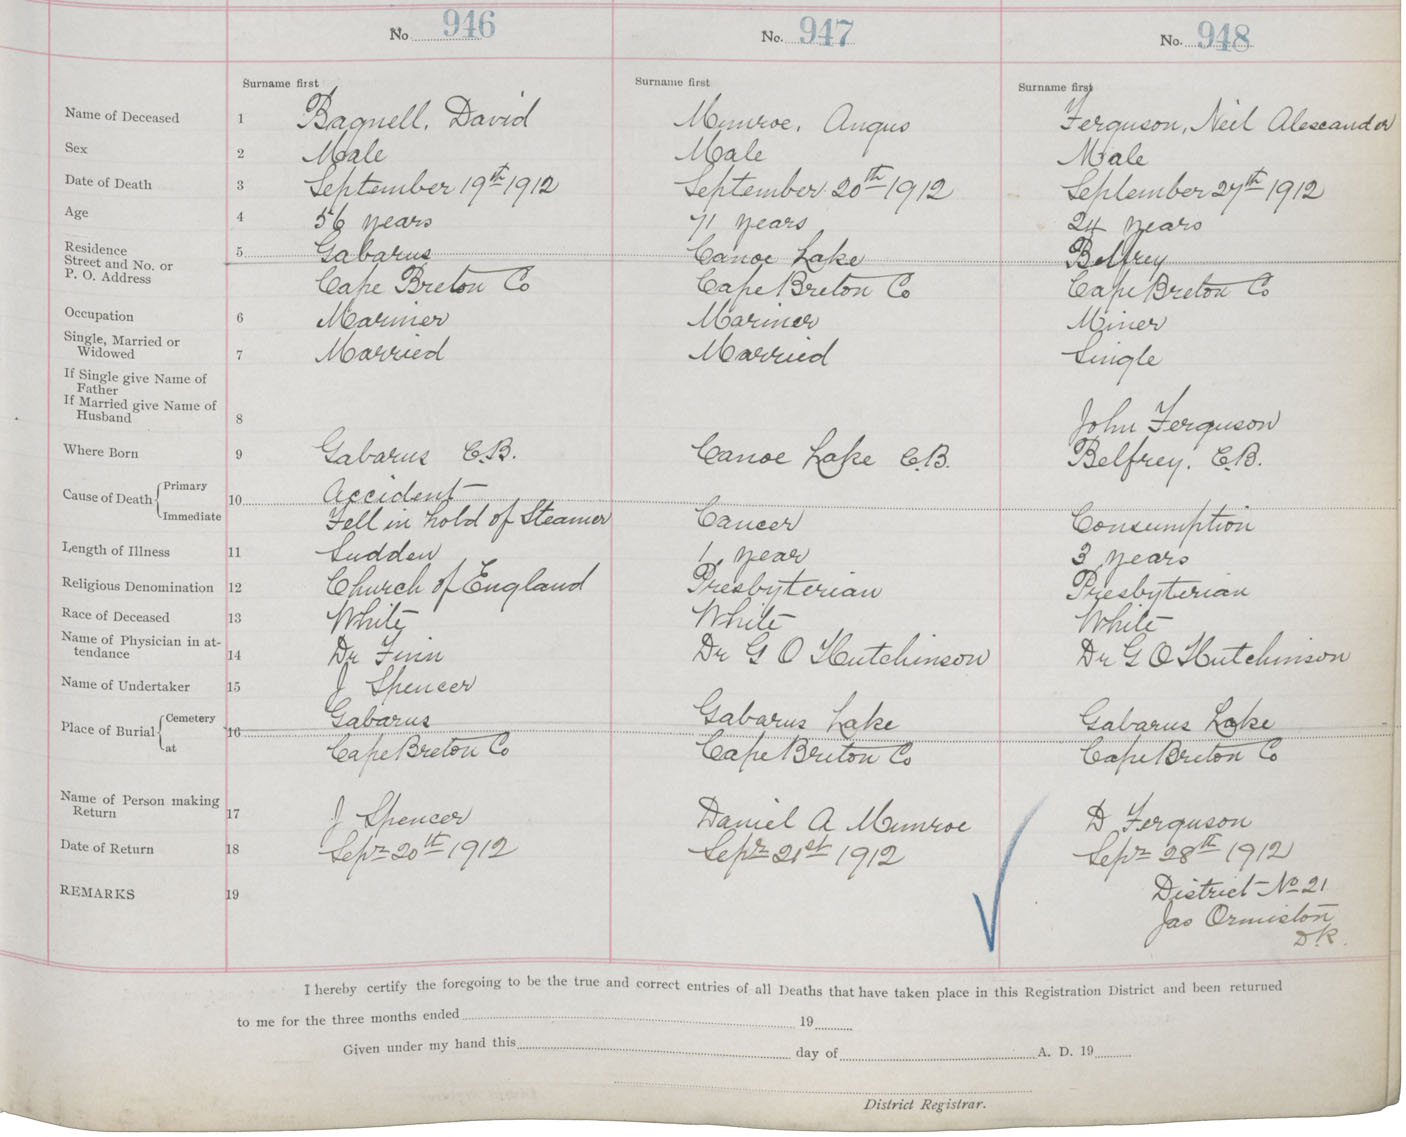 No 946 No. 947 No. 948
Surname first Surname first Surname first
Name of Deceased 1 Bagnell, David Munroe, Angus Ferguson, Neil Alexander
Sex 2 Male Male Male
Date of Death 3 September 19th 1912 September 20th 1912 September 27th 1912
Age 4 56 years 71 years 24 years
Residence
Street and No. or
P. O. Address
5 Gabarus Canoe Lake Belfrey
Cape Breton Co Cape Breton Co Cape Breton Co
Occupation 6 Mariner Mariner Miner
Single, Married or
Widowed 7 Married Married Single
If Single give Name of
Father
If Married give Name of
Husband 8 John Ferguson
Where Born 9 Gabarus C.B. Canoe Lake C.B. Belfrey, C.B.
Cause of Death Primary 10 Accident
Immediate Fell in hold of Steamer Cancer Consumption
Length of Illness 11 Sudden 1 year 3 years
Religious Denomination 12 Church of England Presbyterian Presbyterian
Race of Deceased 13 White White White
Name of Physician in at-
tendance 14 Dr Finn Dr G O Hutchinson Dr G O Hutchinson
Name of Undertaker 15 J Spencer
Place of Burial Cemetery 16 Gabarus Gabarus Lake Gabarus Lake
at Cape Breton Co Cape Breton Co Cape Breton Co
Name of Person making
Return 17 J Spencer Daniel A Munroe D Ferguson
Date of Return 18 Sepr 20th 1912 Sepr 21st 1912 Sepr 28th 1912
REMARKS 19 District No 21
Jas Ormiston
D.R.
I hereby certify the foregoing to be the true and correct entries of all Deaths that have taken place in this Registration District and been returned
to me for the three months ended 19
Given under my hand this day of A. D. 19
District Registrar.